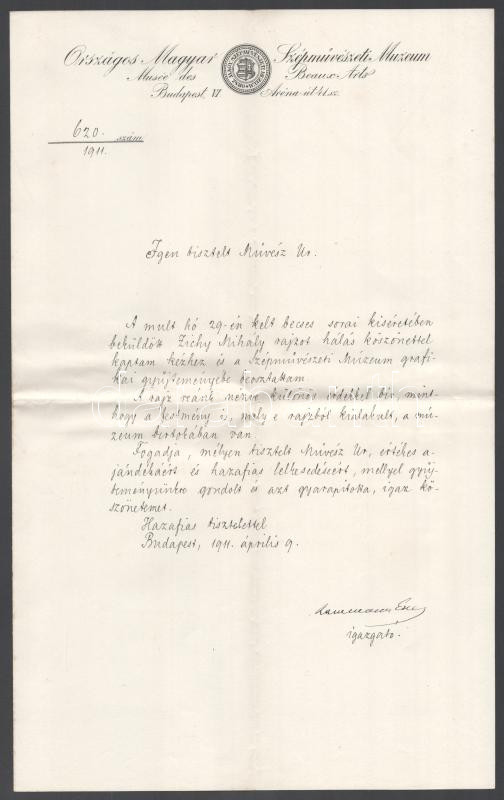 Országos Magyar Szépművészeti Muzeum
Musée des Beaux-Arts
Budapest, VI Aréna-út 41. sz.
620. szám
1911.
Igen tisztelt Művész Ur.
A mult hó 29-én kelt becses sorai kiséretében
beküldött Zichy Mihály rajzot hálás köszönettel
kaptam kézhez és a Szépművészeti Múzeum grafi-
kai gyüjteményébe beosztattam.
A rajz reánk nézve különös érdekkel bir, mint-
hogy a festmény is, mely e rajzból kialakult, a mú-
zeum birtokában van.
Fogadja, mélyen tisztelt Művész Ur, értékes a-
jándékáért és hazafias lelkesedéséért, mellyel gyüj-
teményünkre gondolt és azt gyarapitotta, igaz kö-
szönetemet.
Hazafias tisztelettel
Budapest, 1911. április 9.
igazgató.